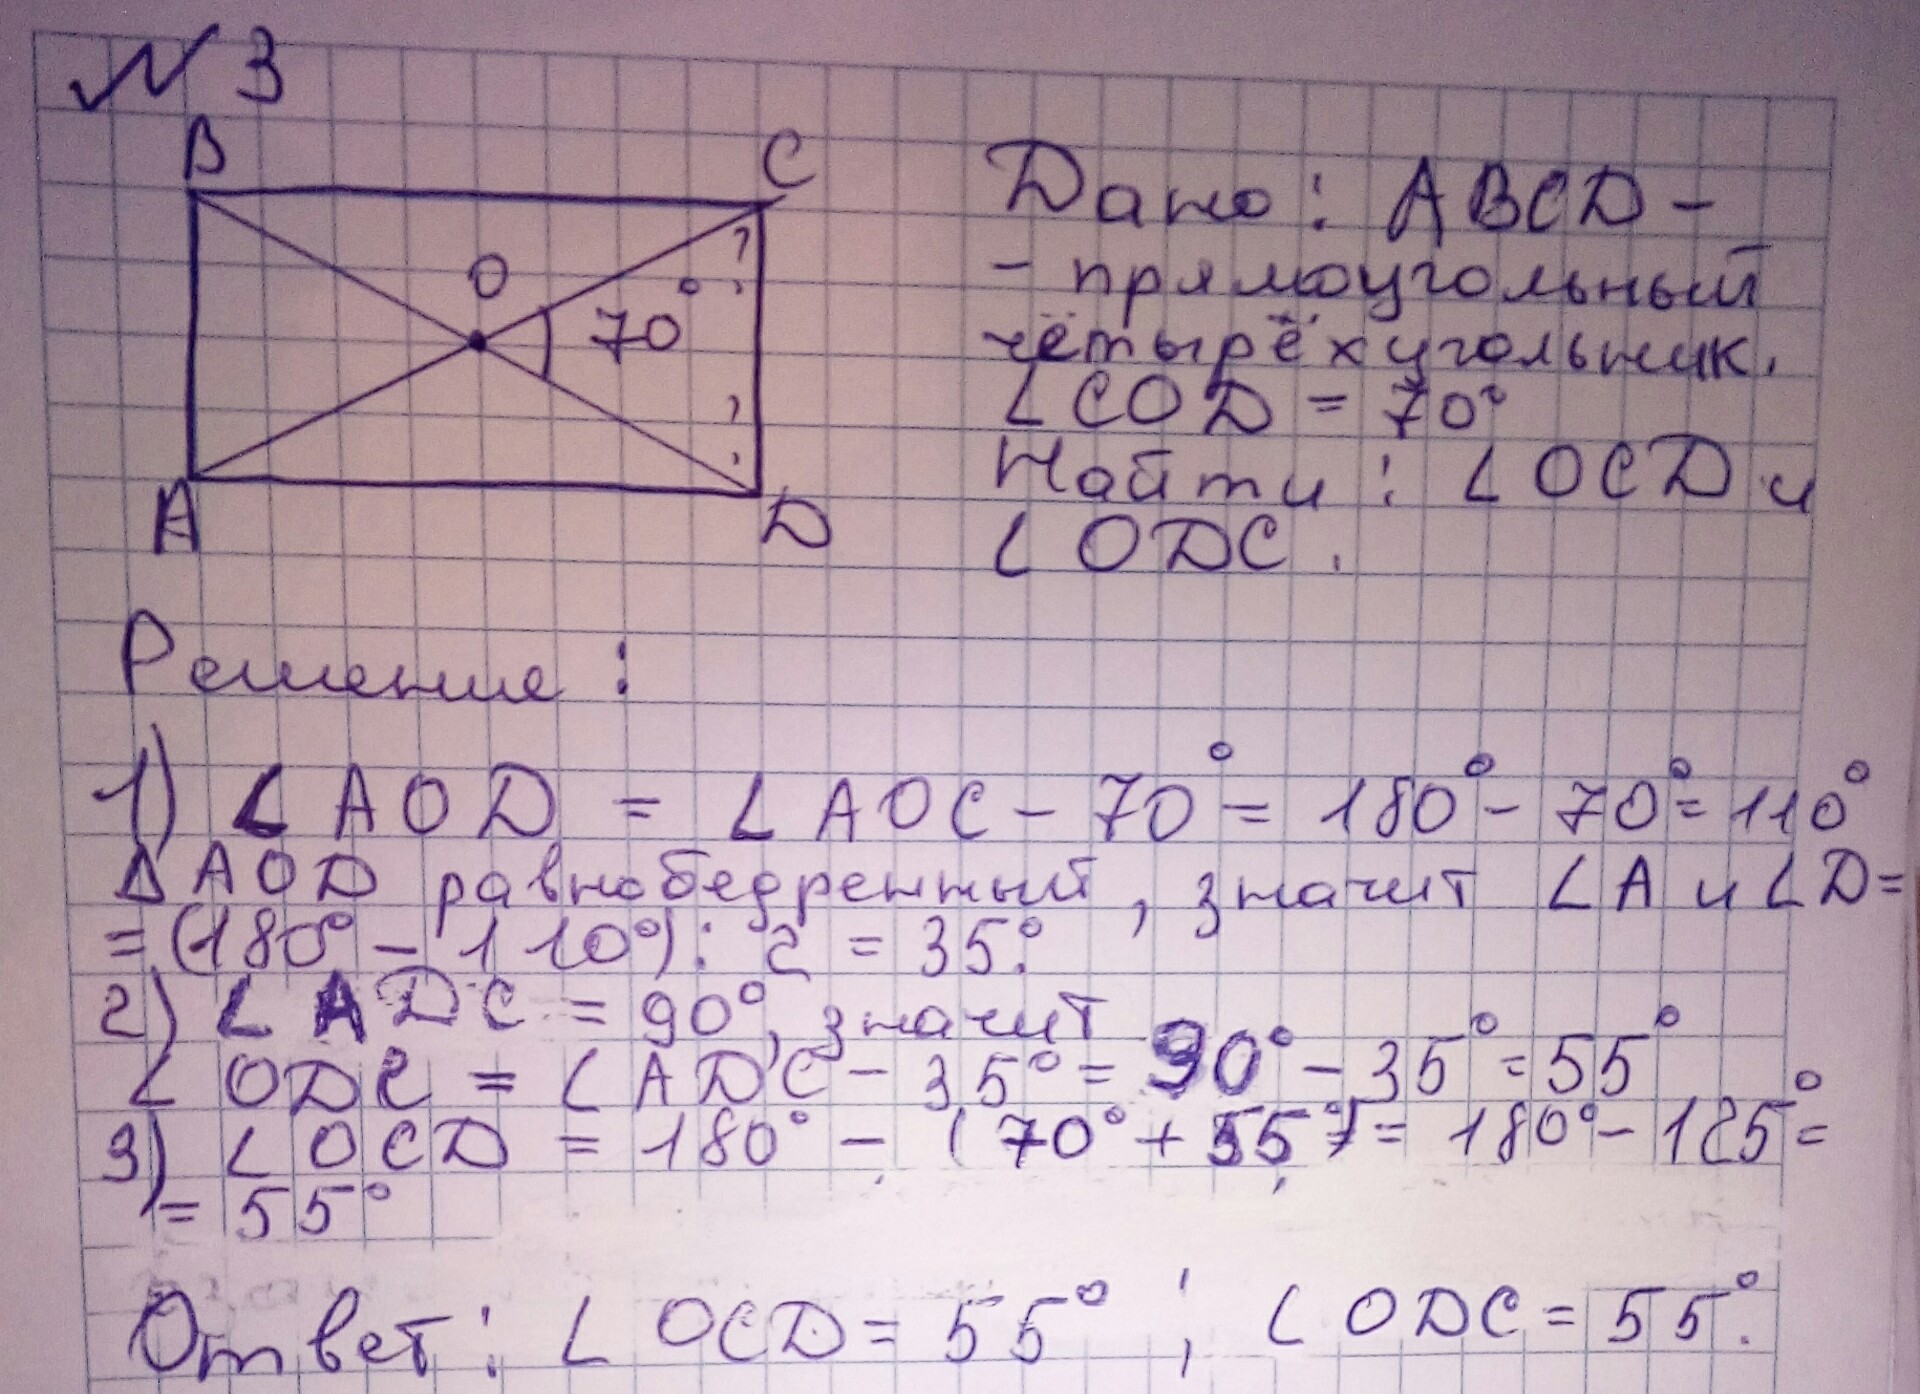 № 3
B C
O 70° ? ?
A D
Дано: ABCD -
- прямоугольный
чётырёхугольник.
∠COD = 70°
Найти: ∠OCD и
∠ODC.
Решение:
1) ∠AOD = ∠AOC - 70° = 180° - 70° = 110°
△AOD равнобедренный, значит ∠A и ∠D =
= (180° - 110°) : 2 = 35°.
2) ∠ADC = 90°, значит
∠ODC = ∠ADC - 35° = 90° - 35° = 55°
3) ∠OCD = 180° - (70° + 55°) = 180° - 125° =
= 55°
Ответ: ∠OCD = 55° ; ∠ODC = 55°.